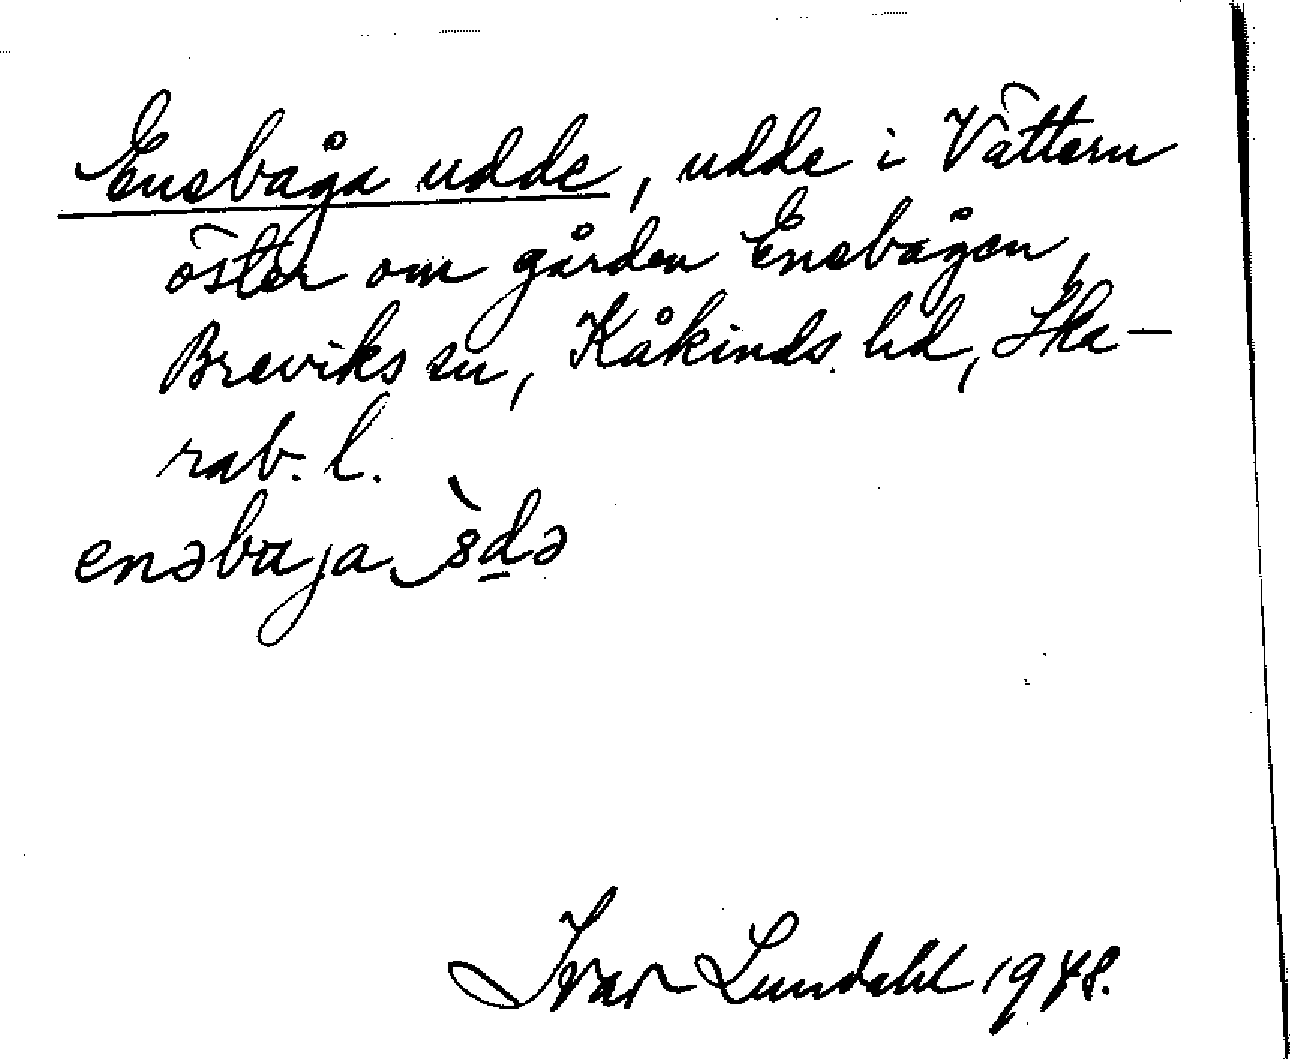 Enebåga udde, udde i Vättern
öster om gården Enebågen,
Breviks sn, Kåkinds hd, Ska-
rab. l.
enəbaja ‿ˋ8də
Ivar Lundahl 1948.